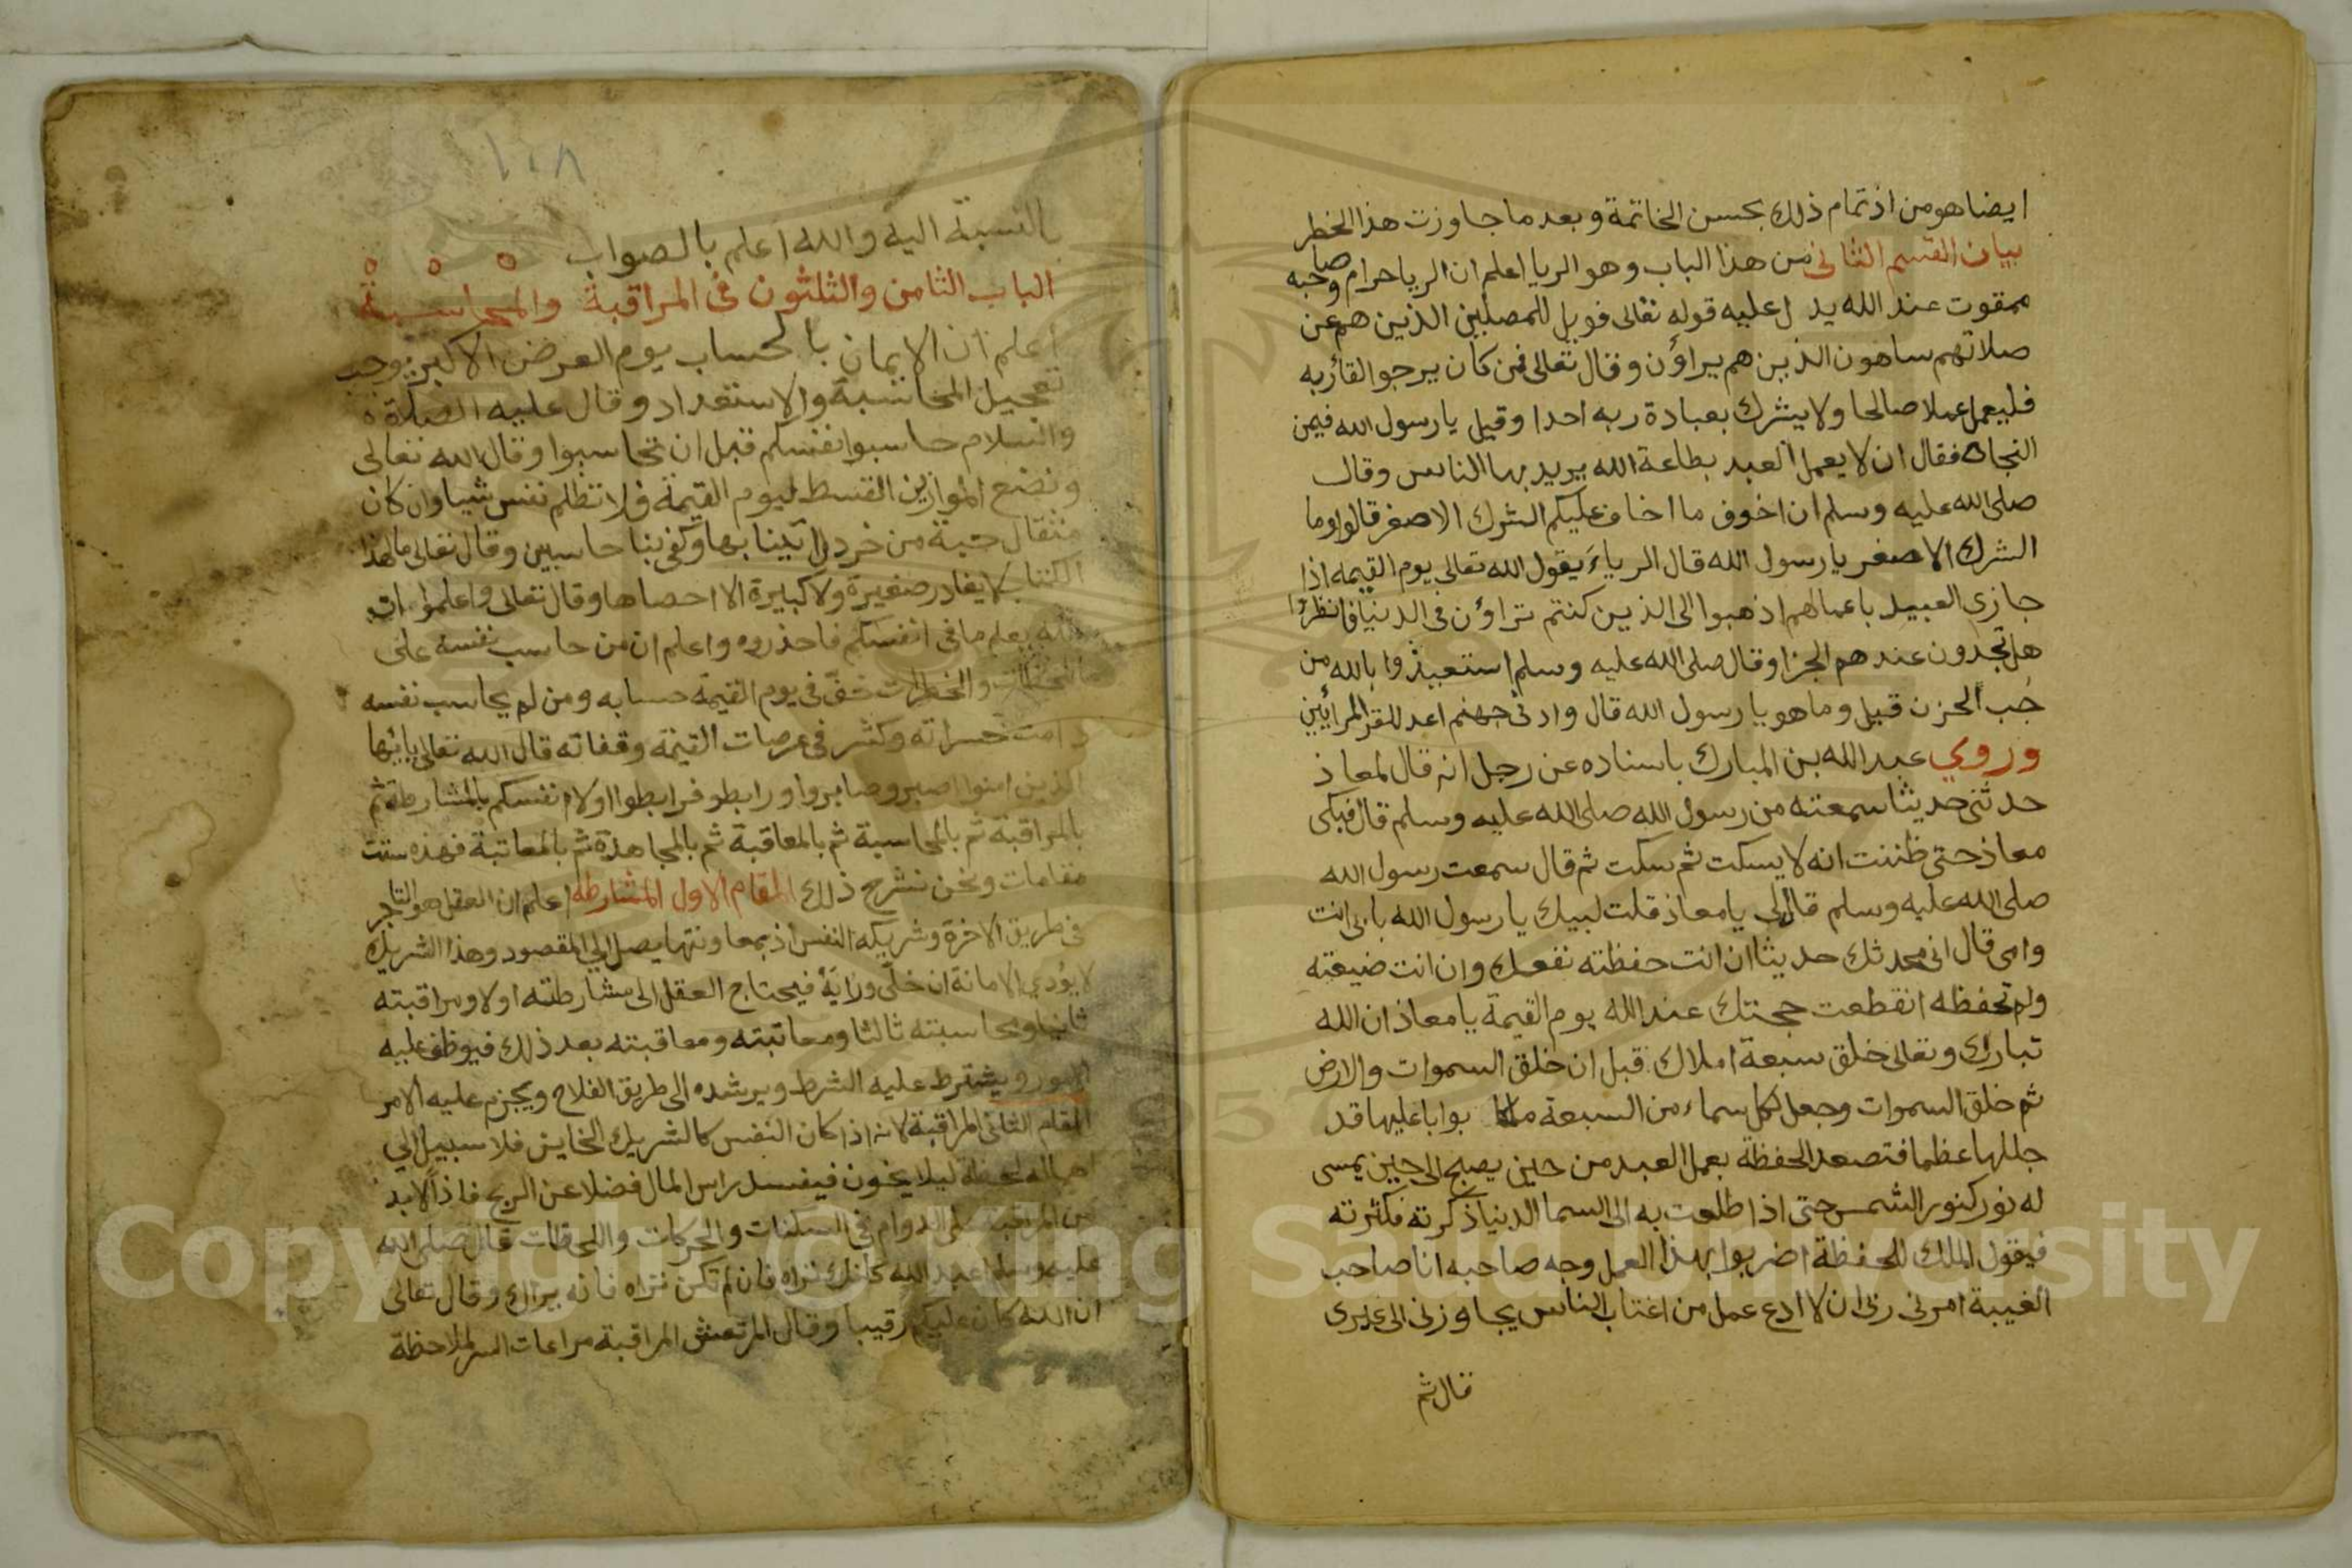 ايضا هو من اذ تمام ذلك بحسن الخاتمة وبعد ما جاوزت هذا الخطر
بيان القسم الثانى من هذا الباب وهو الريا اعلم ان الريا حرام وصاحبه
ممقوت عند الله يدل عليه قوله تعالى فويل للمصلين الذين هم عن
صلاتهم ساهون الذين هم يراؤن وقال تعالى فمن كان يرجو القاء ربه
فليعمل عملا صالحا ولا يشرك بعبادة ربه احدا وقيل يا رسول الله فيمن
النجاة فقال ان لا يعمل العبد بطاعة الله يريد بها الناس وقال
صلى الله عليه وسلم ان اخوف ما اخاف عليكم الشرك الاصغر قالوا وما
الشرك الاصغر يا رسول الله قال الرياء يقول الله تعالى يوم القيمه اذا
جازى العبيد باعمالهم اذهبوا الى الذين كنتم تراؤن فى الدنيا فانظروا
هل تجدون عندهم الجزا وقال صلى الله عليه وسلم استعيذوا بالله من
جُب الحزن قيل وما هو يا رسول الله قال واد فى جهنم اعد للقرا المرايين
وروي عبد الله بن المبارك باسناده عن رجل انه قال لمعاذ
حدثنى حديثا سمعته من رسول الله صلى الله عليه وسلم قال فبكى
معاذ حتى ظننت انه لا يسكت ثم سكت ثم قال سمعت رسول الله
صلى الله عليه وسلم قال لى يا معاذ قلت لبيك يا رسول الله بابى انت
وامى قال انى محدثك حديثا ان انت حفظته نفعك وان انت ضيعته
ولم تحفظه انقطعت حجتك عند الله يوم القيمة يا معاذ ان الله
تبارك وتعالى خلق سبعة املاك قبل ان خلق السموات والارض
ثم خلق السموات وجعل لكل سماء من السبعة ملكا بوابا عليها قد
جللها عظما فتصعد الحفظة بعمل العبد من حين يصبح الى حين يمسى
له نور كنور الشمس حتى اذا طلعت به الى السما الدنيا ذكرته فكثرته
فيقول الملك للحفظة اضربوا بهذا العمل وجه صاحبه انا صاحب
الغيبة امرنى ربى ان لا ادع عمل من اغتاب الناس يجاوزنى الى غيرى
قال ثم
١٠٨
بالنسبة اليه والله اعلم بالصواب
الباب الثامن والثلثون فى المراقبة والمحاسبة
اعلم ان الايمان بالحساب يوم العرض الاكبر يوجب
تعجيل المحاسبة والاستعداد وقال عليه الصلاة
والسلام حاسبوا انفسكم قبل ان تحاسبوا وقال الله تعالى
ونضع الموازين القسط ليوم القيمة فلا تظلم نفس شيا وان كان
مثقال حبة من خردل اتينا بها وكفى بنا حاسبين وقال تعالى ما لهذا
الكتاب لا يغادر صغيرة ولا كبيرة الا احصاها وقال تعالى واعلموا ان
الله يعلم ما فى انفسكم فاحذروه واعلم ان من حاسب نفسه على
والخطرات خفّ فى يوم القيمة حسابه ومن لم يحاسب نفسه
دامت حسراته وكثر فى عرصات القيمة وقفاته قال الله تعالى يا ايها
الذين امنوا اصبروا وصابروا ورابطو فرابطوا اولا نفسكم بالمشارطة ثم
بالمراقبة ثم بالمحاسبة ثم بالمعاقبة ثم بالمجاهدة ثم بالمعاتبة فهذه ست
مقامات ونحن نشرح ذلك المقام الاول المشارطه اعلم ان العقل هو التاجر
فى طريق الاخرة وشريكه النفس اذ بمعاونتها يصل الي المقصود وهذا الشريك
لا يؤدي الامانة ان خلّى ورايه فيحتاج العقل الى مشارطته اولا ومراقبته
ثانيا ومحاسبته ثالثا ومعاتبته ومعاقبته بعد ذلك فيوظف عليه
الامور ويشترط عليه الشرط ويرشده الى طريق الفلاح ويجزم عليه الامر
المقام الثانى المراقبة لانه اذا كان النفس كالشريك الخاين فلا سبيل الي
اهماله لحظة ليلا يخون فيفسد راس المال فضلا عن الربح فاذا لا بد
من المراقبة على الدوام فى السكنات والحركات واللحظات قال صلى الله
عليه وسلم اعبد الله كانك تراه فان لم تكن تراه فانه يراك وقال تعالى
ان الله كان عليكم رقيبا وقال المرتعش المراقبة مراعات السر لملاحظة
Copyright © King Saud University
1957